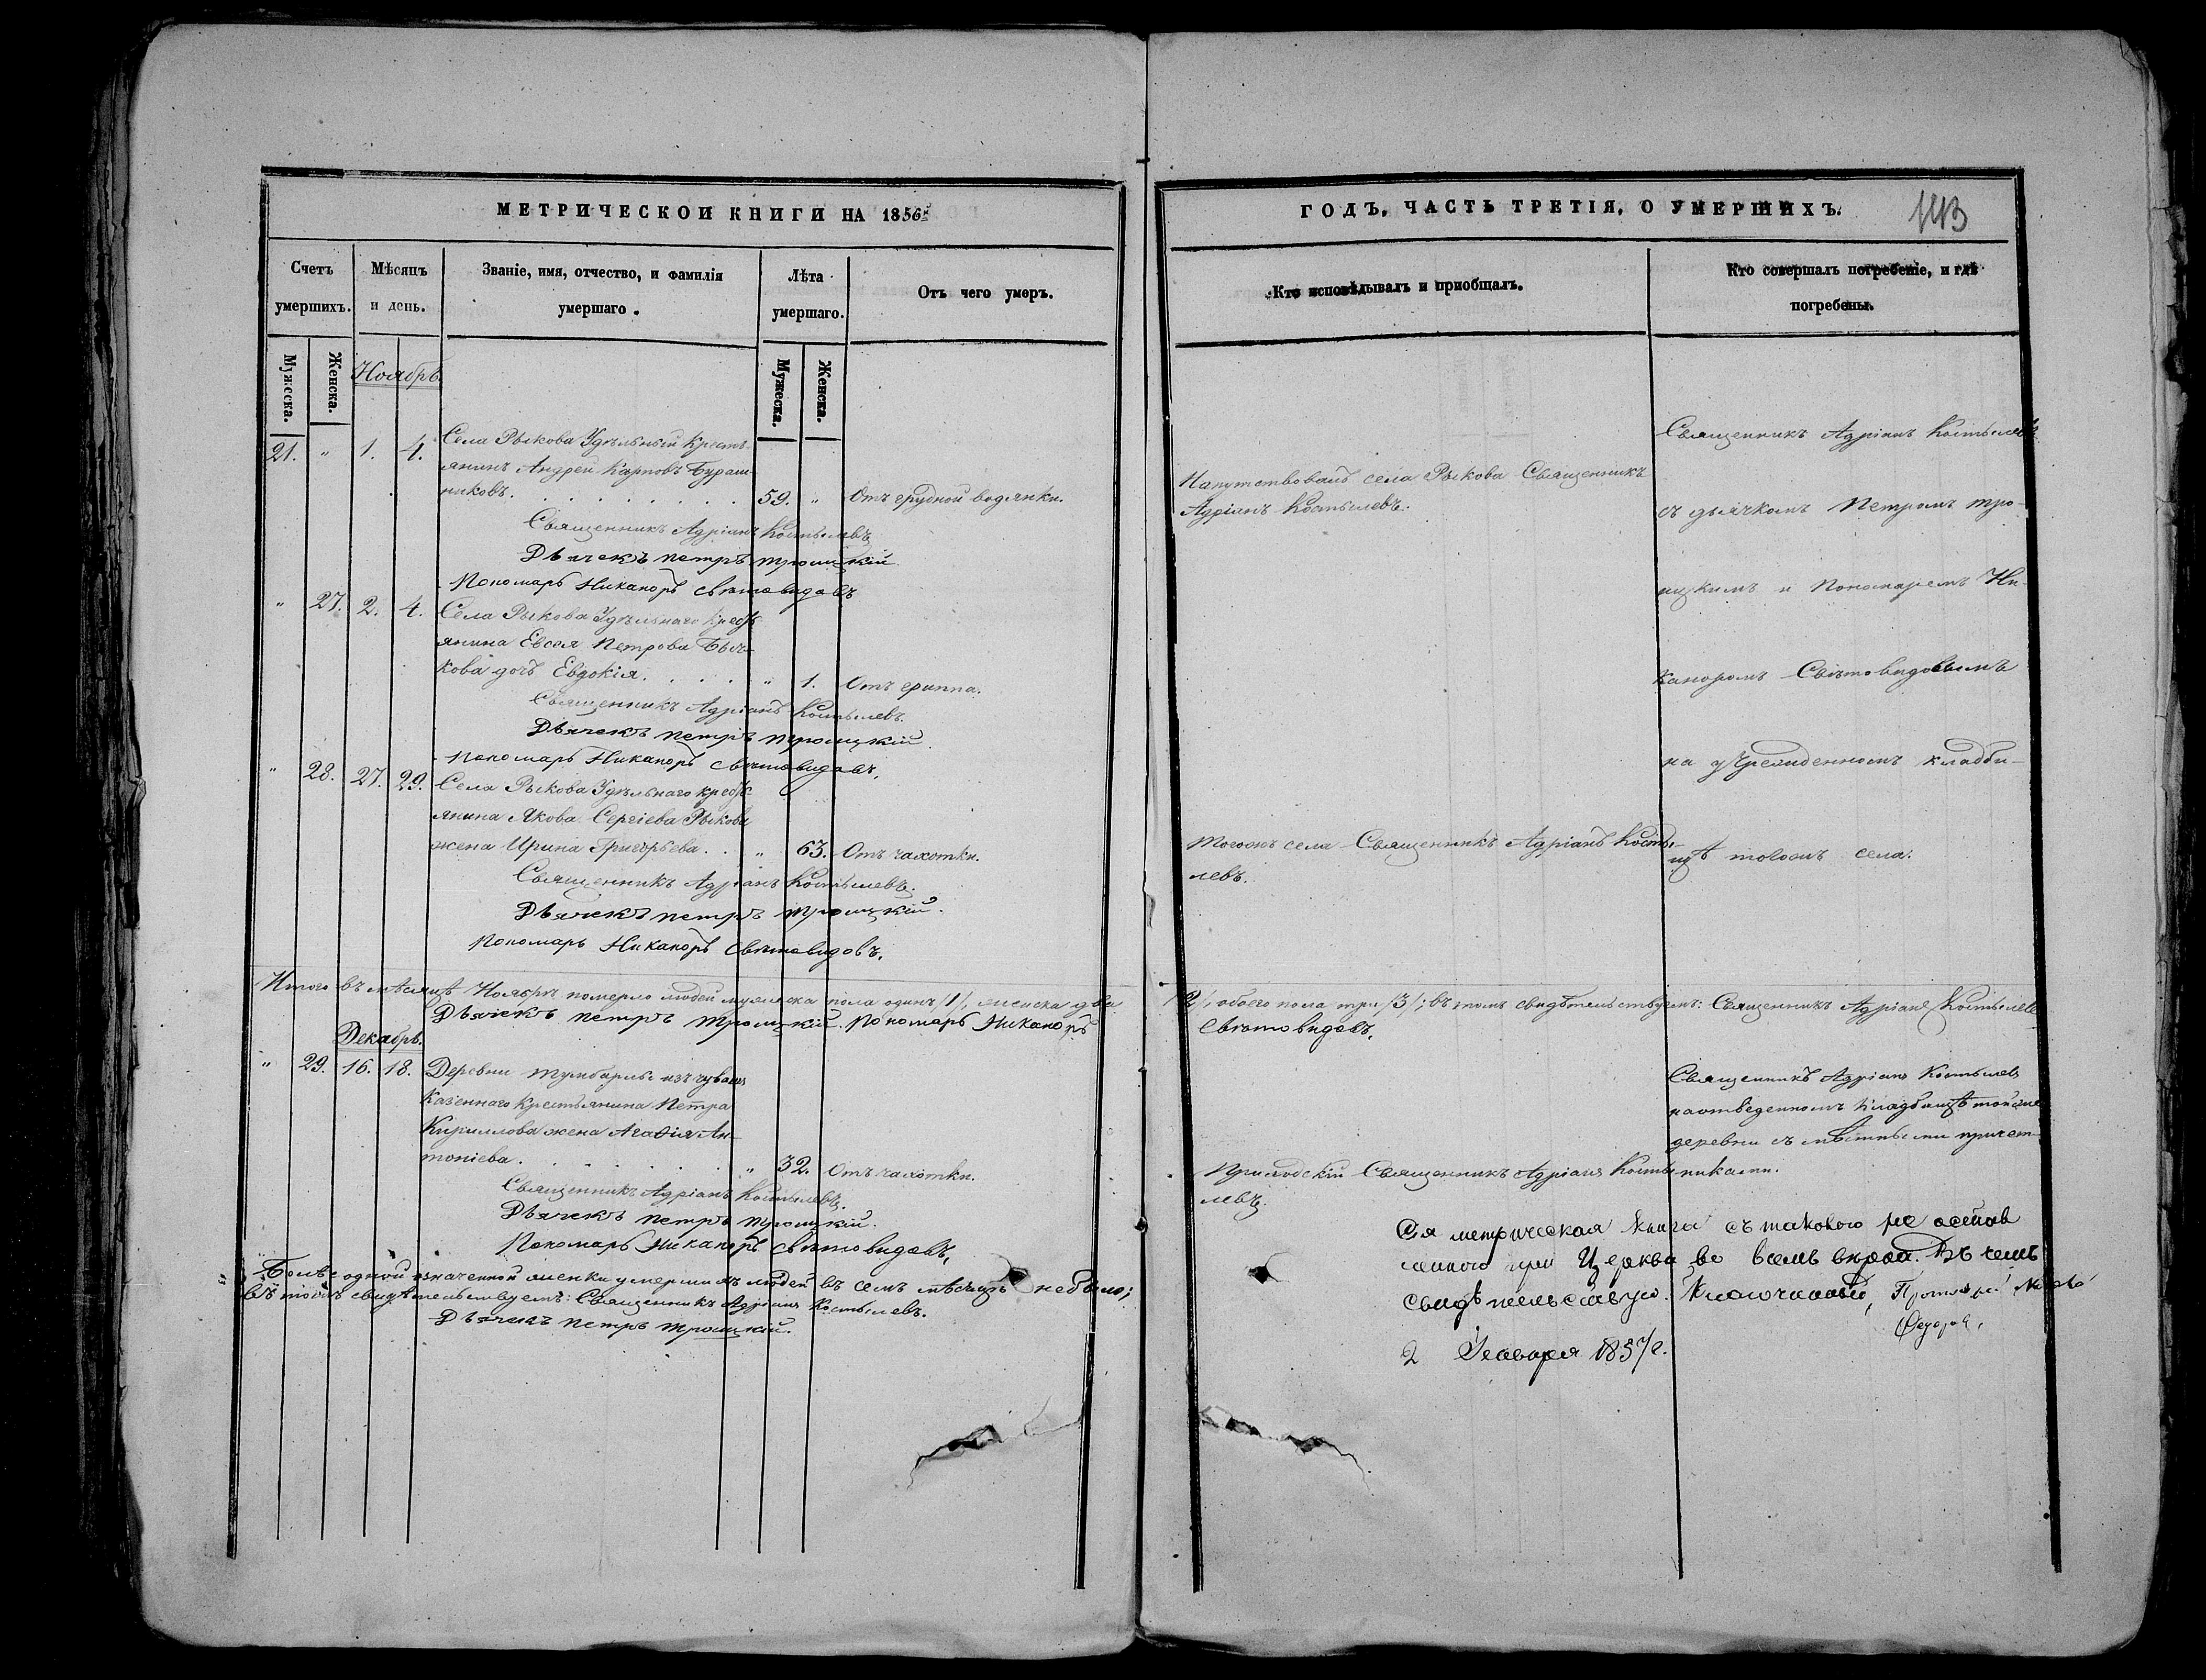 МЕТРИЧЕСКОЙ КНИГИ НА 1856й
Счетъ умершихъ.
Мѣсяцъ и день.
Званіе, имя, отчество, и фамилія умершаго.
Лѣта умершаго.
Отъ чего умеръ.
Мужеска.
Женска.
Мужеска.
Женска.
Ноябрь.
21. " 1. 4. Села Рыкова Удѣльный Кресть-
янинъ Андрей Карповъ Бураш-
никовъ. 59. " Отъ грудной водянки.
Священникъ Адріанъ Костылевъ
Дьячекъ Петръ Троицкій
Пономарь Никаноръ Свѣтовидовъ
" 27. 2. 4. Села Рыкова Удѣльнаго Крест-
янина Евсея Петрова Быч-
кова дочь Евдокія. " 1. Отъ гриппа.
Священникъ Адріанъ Костылевъ.
Дьячекъ Петръ Троицкій.
Пономарь Никаноръ Свѣтовидовъ.
" 28. 27. 29. Села Рыкова Удѣльнаго крест-
янина Якова Сергіева Рыкова
жена Ирина Григорьева. " 63. Отъ чахотки.
Священникъ Адріанъ Костылевъ.
Дьячекъ Петръ Троицкій.
Пономарь Никаноръ Свѣтовидовъ.
Итого въ мѣсяцѣ Ноябрѣ померло людей мужеска пола одинъ /1/, женска два
Дьячекъ Петръ Троицкій. Пономарь Никаноръ
Декабрь.
" 29. 16. 18. Деревни изъ чувашъ
Казеннаго Крестьянина Петра
Кириллова жена Агафія Ан-
тоніева. " 32. Отъ чахотки.
Священникъ Адріанъ Костылевъ.
Дьячекъ Петръ Троицкій.
Пономарь Никаноръ Свѣтовидовъ.
Болѣе одной означенной женки умершихъ людей въ семъ мѣсяцѣ не было;
въ томъ свидѣтельствуемъ: Священникъ Адріанъ Костылевъ.
Дьячекъ Петръ Троицкій.
ГОДЪ, ЧАСТЬ ТРЕТІЯ, О УМЕРШИХЪ.
143
Кто исповѣдывалъ и пріобщалъ.
Кто совершалъ погребеніе, и гдѣ погребены.
Напутствовалъ села Рыкова Священникъ
Адріанъ Костылевъ.
Священникъ Адріанъ Костылевъ
съ дьячкомъ Петромъ Тро-
ицкимъ и Пономаремъ Ни-
каноромъ Свѣтовидовымъ
на учрежденномъ кладби-
щѣ тогожъ села.
Тогожъ села Священникъ Адріанъ Косты-
левъ.
/2/, обоего пола три /3/; въ томъ свидѣтельствуемъ: Священникъ Адріанъ Костылевъ
Свѣтовидовъ.
Священникъ Адріанъ Костылевъ
на отведенномъ кладбищѣ той же
деревни съ мѣстными причет-
никами.
Приходскій Священникъ Адріанъ Косты-
левъ.
Сія метрическая книга съ таковою же остав
ленною при Церкви во всемъ вѣрна. Въ чемъ
свидѣтельствую. Благочинный, Протоіерей
2 Генваря 1857 г.